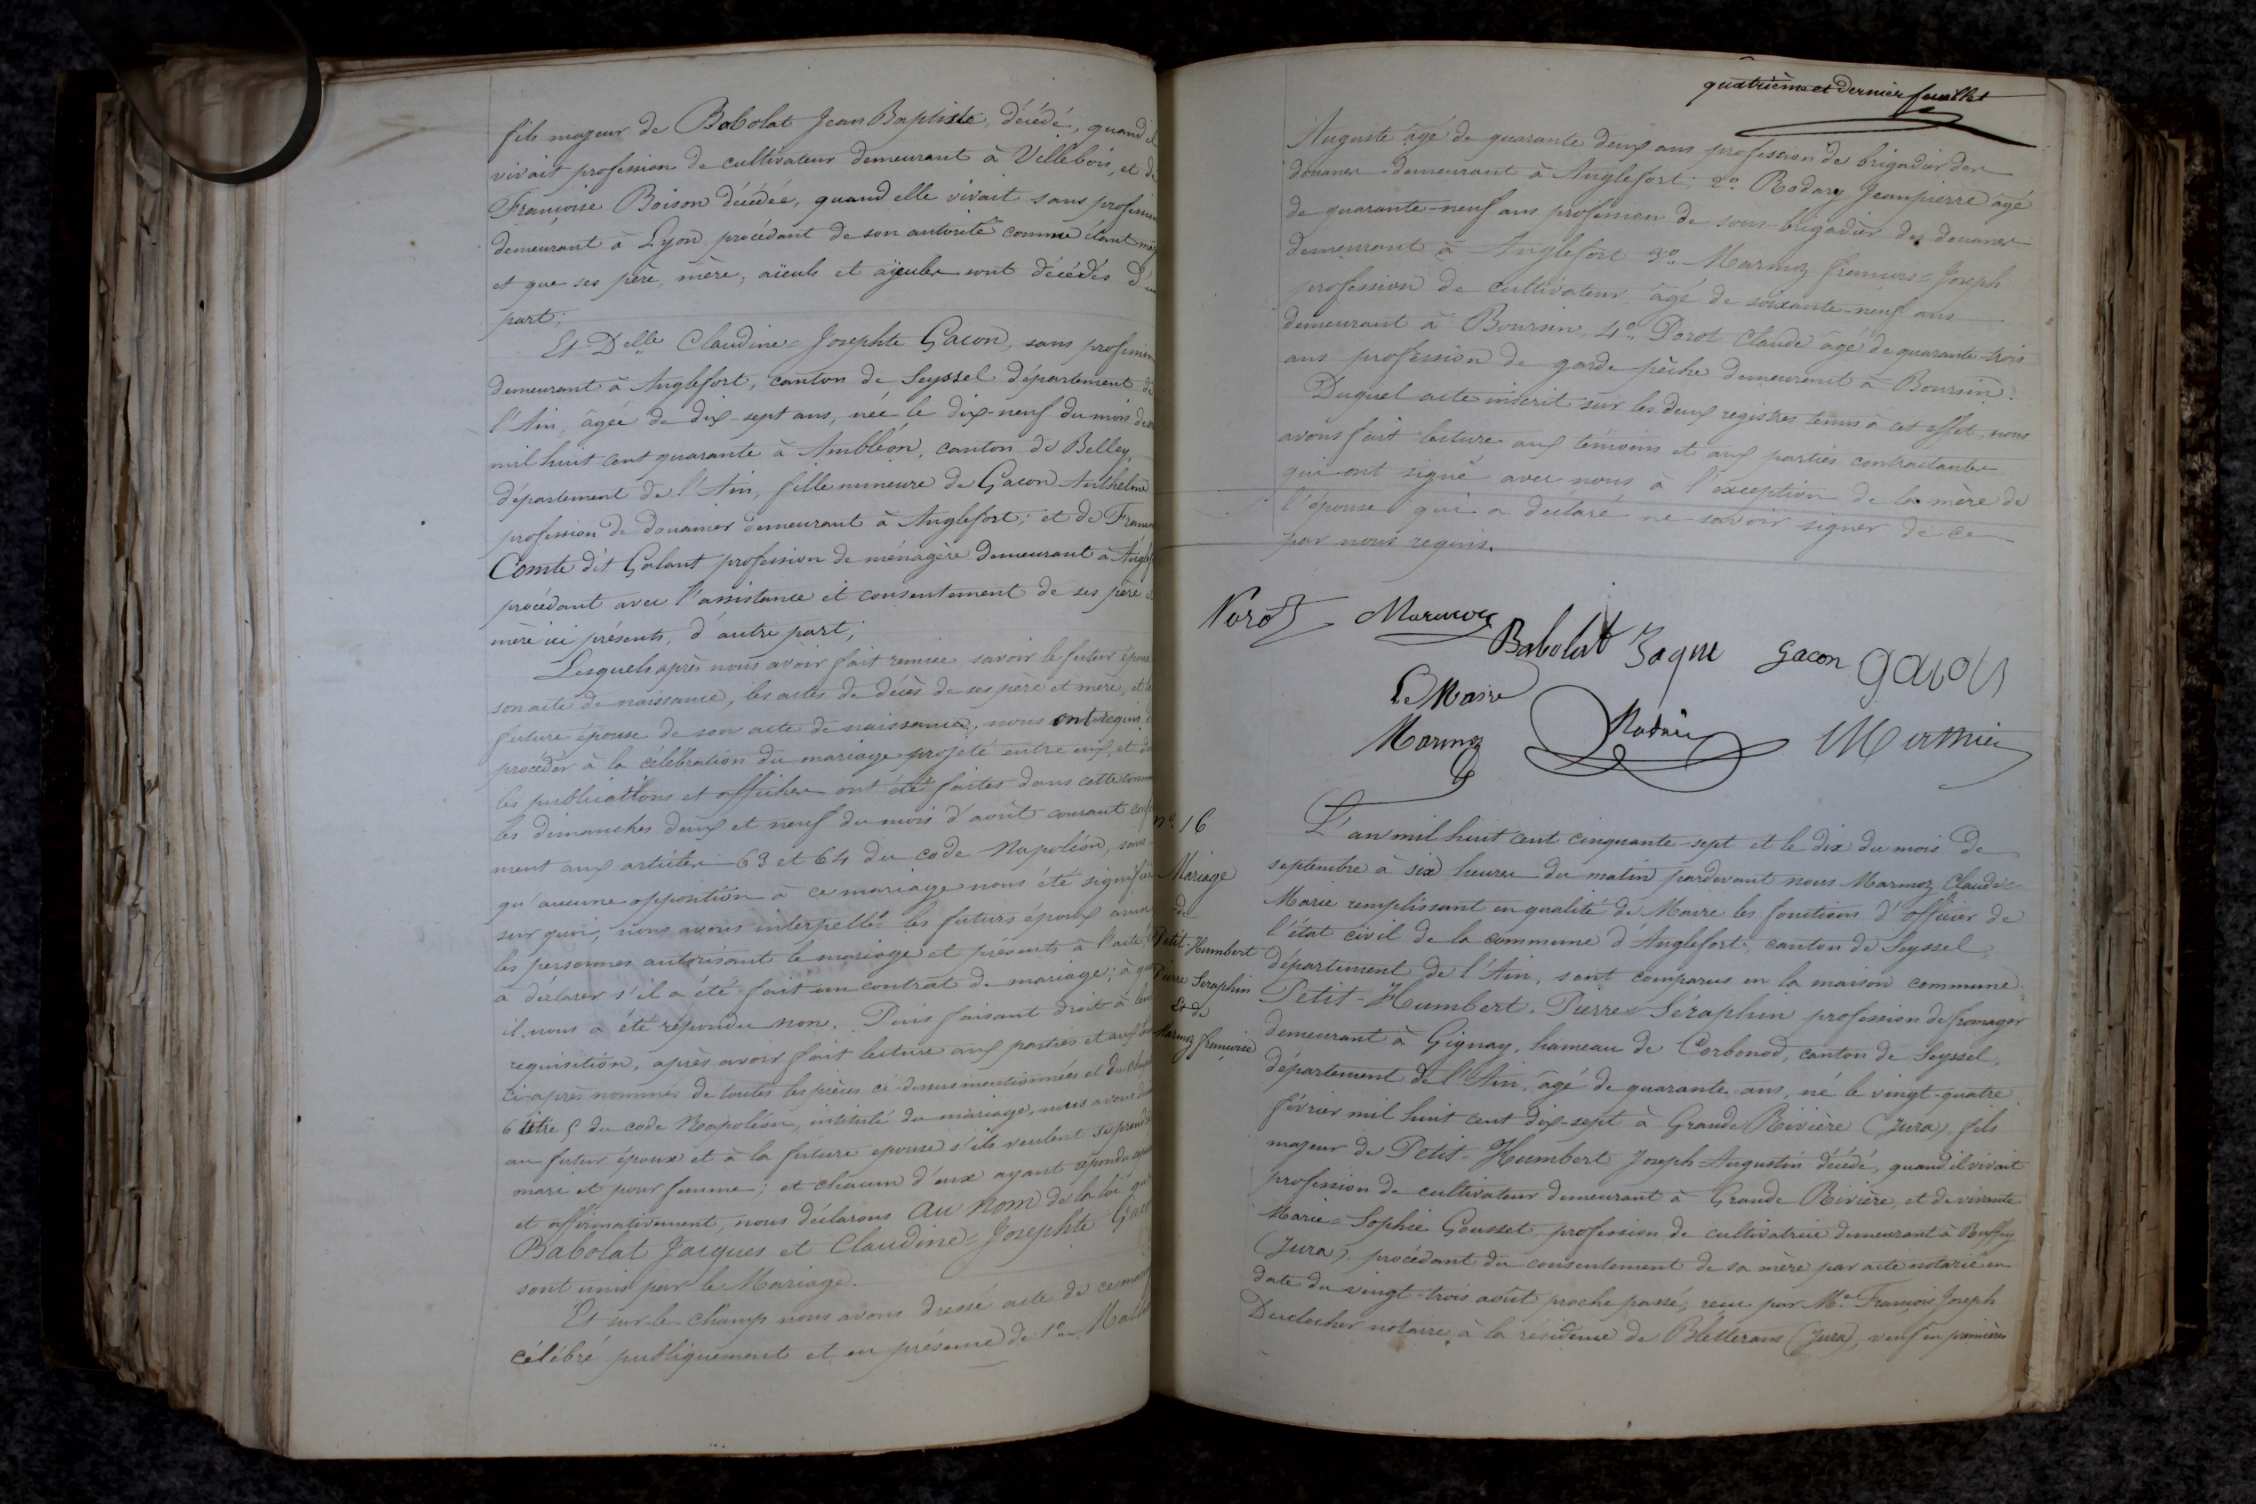 fils majeur de Babolat Jean Baptiste, décédé, quand il
vivait profession de cultivateur demeurant à Villebois, et de
Françoise Boison décédée, quand elle vivait sans profession
demeurant à Lyon procédant de son autorité comme étant maj
et que ses père, mère, aïeuls et aÿeules sont décédés d'une
part;
Et Delle Claudine-Josephte Gacon, sans profession
demeurant à Anglefort, canton de Seyssel département de
l'Ain, âgée de dix-sept ans, née le dix-neuf du mois de
mil huit cent quarante à Ambléon, canton de Belley,
département de l'Ain, fille mineure de Gacon Anthelme
profession de douanier demeurant à Anglefort; et de Fran
Comte dit Galant profession de ménagère demeurant à Anglef
procédant avec l'assistance et consentement de ses père et
mère ici présents, d'autre part;
Lesquels après nous avoir fait remise, savoir le futur époux
son acte de naissance, les actes de décès de ses père et mère, et la
future épouse de son acte de naissance, nous ont requis de
procéder à la célébration du mariage projeté entre eux, et dont
les publications et affiches ont été faites dans cette commune
les dimanches deux et neuf du mois d'août courant confor
ment aux articles 63 et 64 du code Napoléon, sans
qu'aucune opposition à ce mariage nous été signifiée
sur quoi, nous avons interpellé les futurs époux ainsi
les personnes autorisant le mariage et présents à l'acte,
à déclarer s'il a été fait un contrat de mariage; à quoi
il nous a été répondu non. Puis faisant droit à leur
requisition, après avoir fait lecture aux parties et aux
ci-après nommés de toutes les pièces ci-dessus mentionnées et du chapitre
6 titre 5 du code Napoléon, intitulé du mariage, nous avons
au futur époux et à la future épouse s'ils veulent se prendre
mari et pour femme; et chacun d'eux ayant répondu
et affirmativement, nous déclarons au nom de la loi que
Babolat Jacques et Claudine-Josephte Gacon
sont unis par le Mariage.
Et sur-le-champ nous avons dressé acte de ce
célébré publiquement et en présence de 1°
quatrième et dernier feuillet
Auguste âgé de quarante deux ans profession de brigadier des
douanes demeurant à Anglefort; 2° Rodary Jeanpierre âgé
de quarante-neuf ans profession de sous-brigadier des douanes
demeurant à Anglefort 3° Marmoz françois-Joseph
profession de cultivateur âgé de soixante-neuf ans
demeurant à Boursin. 4° Porot Claude âgé de quarante-trois
ans profession de garde pêche demeurant à Boursin.
Duquel acte inscrit sur les deux registres tenus à cet effet, nous
avons fait lecture aux témoins et aux parties contractantes
qui ont signé avec nous à l'exception de la mère de
l'épouse qui a déclaré ne savoir signer de ce
par nous requis.
Babolat Jaque gacon gacon
Le Maire
Marmoz
n° 16
Mariage
de
Petit-Humbert
Pierre Séraphin
Et de
Marmoz françoise
L'an mil huit cent cinquante-sept et le dix du mois de
septembre à six heures du matin pardevant nous Marmoz Claude-
Marie remplissant en qualité de Maire les fonctions d'officier de
l'état civil de la commune d'Anglefort, canton de Seyssel,
département de l'Ain, sont comparus en la maison commune,
Petit-Humbert, Pierre Séraphin profession de fromager
demeurant à Gignay, hameau de Corbonod, canton de Seyssel,
département de l'Ain, âgé de quarante ans, né le vingt-quatre
février mil huit cent dix-sept à Grande Rivière (Jura), fils
majeur de Petit-Humbert Joseph-Augustin décédé, quand il vivait
profession de cultivateur demeurant à Grande Rivière, et de vivante
Marie-Sophie Gousset profession de cultivatrice demeurant à Ruffey
(Jura), procédant du consentement de sa mère par acte notarié en
date du vingt-trois août proche passé, reçu par Me François Joseph
notaire à la résidence de Bletterans (Jura), veuf en premières